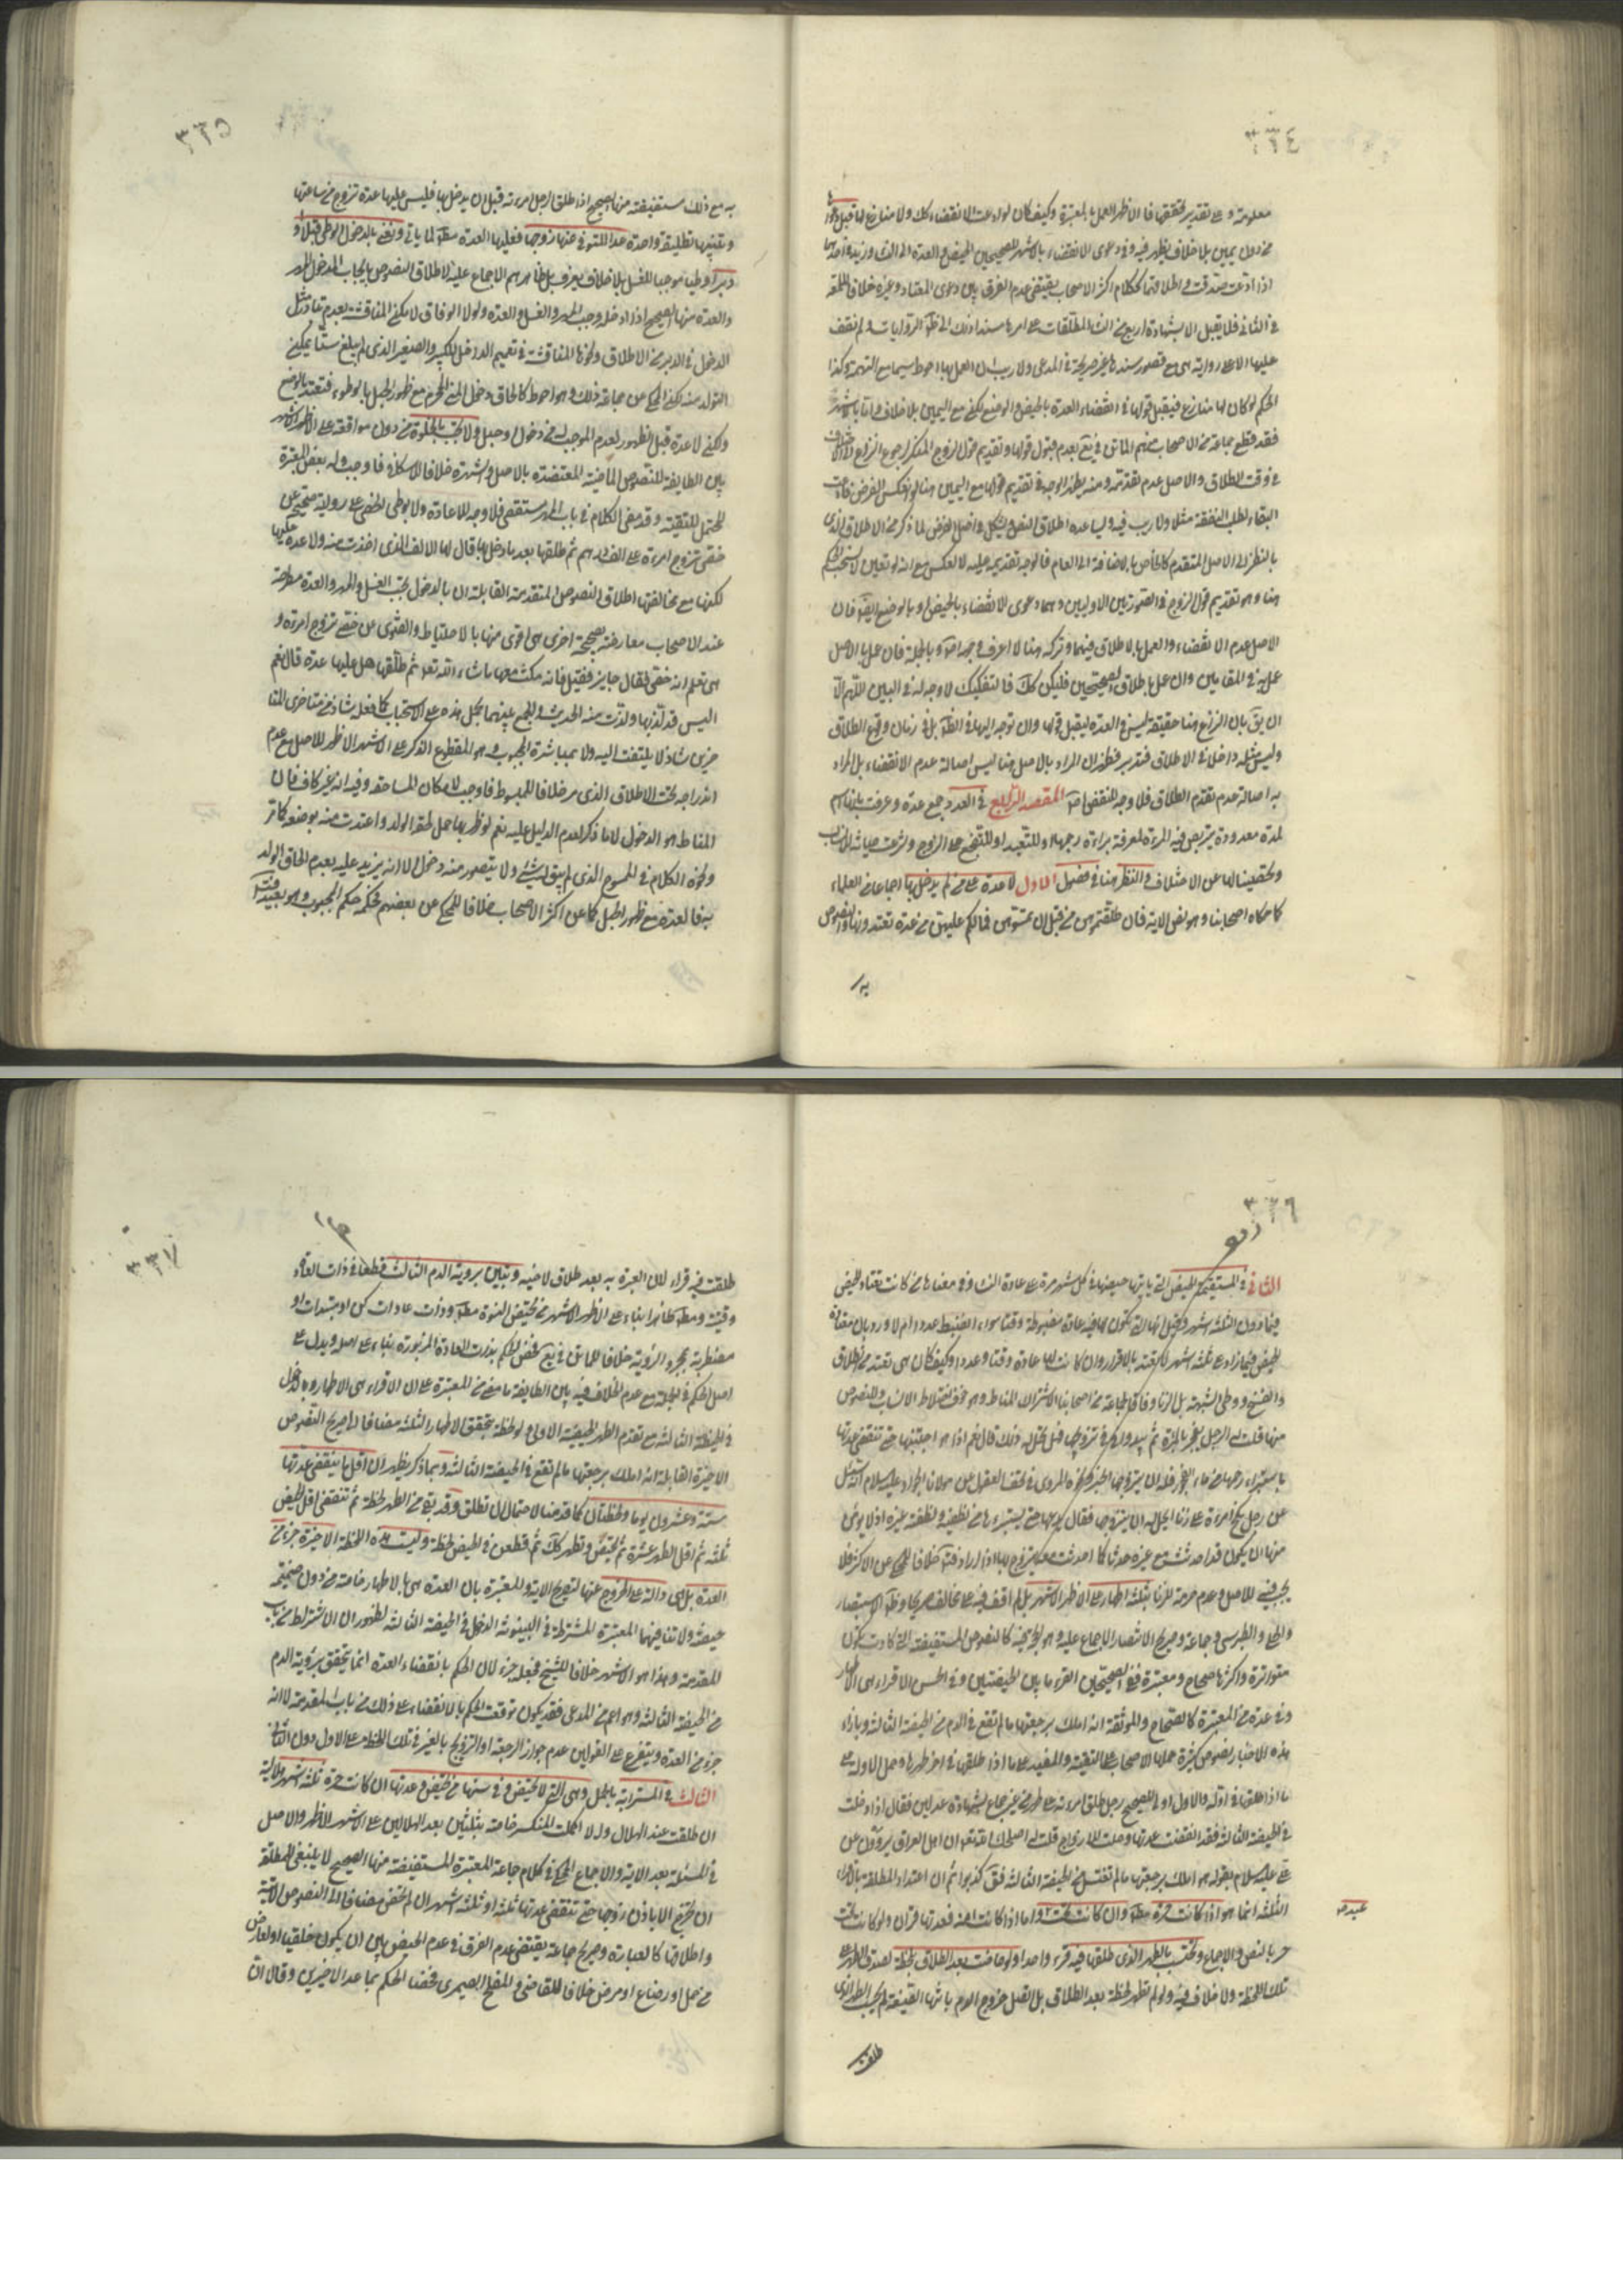 ٣٣٤
معلومة وعلى تقدير تحققها فالاظهر العمل بالمعتبرة وكيف كان لو ادعت الانقضاء ولا منازع لها قبل قولها
من دون يمين بلا خلاف يظهر فيه وفي دعوى الانقضاء بالاشهر للصحيحين الحيض والعدة الى النساء وزيد في احدهما
اذا ادعت صدقت واطلاقهما ككلام اكثر الاصحاب يقتضي عدم الفرق بين دعوى المعتاد وغيره خلافا للمعة
في الثاني فلا يقبل الا بشهادة اربع من النساء المطلعات على امرها مسندا ذلك الى ظاهر الروايات ولم نقف
عليها الا على رواية هي مع قصور سندها غير صريحة في المدعى ولا ريب ان العمل بها احوط سيما مع التهمة وكذا
الحكم لو كان لها منازع فيقبل قولها في انقضاء العدة بالحيض والوضع لكن مع اليمين بلا خلاف واما بالشهور
فقد قطع جماعة من الاصحاب منهم الماتن في يع بعدم قبول قولها وتقديم قول الزوج المنكر لرجوع النزاع الى الاختلاف
في وقت الطلاق والاصل عدم تقدمه ومنه يظهر الوجه في تقديم قولها مع اليمين هنا لو انعكس الفرض فادعت
البقاء لطلب النفقة مثلا ولا ريب فيه ولمساعدة اطلاق النص ويشكل في اصل الفرض لما ذكر من الاطلاق الذي
بالنظر الى الاصل المتقدم كالخاص بالاضافة الى العام فالوجه تقديمه عليه لا العكس مع انه لو تعين لانسحب الحكم
هنا وهو تقديم قول الزوج في الصورتين الاوليين وهما دعوى الانقضاء بالحيض او بالوضع ايضا فان
الاصل عدم الانقضاء والعمل بالاطلاق فيهما وتركه هنا لا اعرف وجهه اصلا وبالجملة فان عمل بالاصل
عمل به في المقامين وان عمل باطلاق الصحيحين فليكن كك فالتفكيك لا وجه له في البين اللهم الا
ان يق بان النزاع هنا حقيقة ليس في العدة ليقبل قولها وان توجه اليها في الظاهر بل في زمان وقوع الطلاق
وليس مثله داخلا في الاطلاق فتدبر فظهر ان المراد بالاصل هنا ليس اصالة عدم الانقضاء بل المراد
به اصالة عدم تقدم الطلاق فلا وجه للنقض اصلا المقصد الرابع في العدد جمع عدة وعرفت بانها اسم
لمدة معدودة يتربص فيه المرءة لمعرفة براءة رحمها او للتعبد او للتفجع على الزوج وشرعت صيانة للانساب
وتحصينا لها عن الاختلاف والنظر هنا في فصول الاول لا عدة على من لم يدخل بها اجماعا من العلماء
كما حكاه اصحابنا وهو نص الاية فان طلقتموهن من قبل ان تمسوهن فما لكم عليهن من عدة تعتدونها والنصوص
به
٣٣٥
به مع ذلك مستفيضة منها الصحيح اذا طلق الرجل امرءته قبل ان يدخل بها فليس عليها عدة تزوج من ساعتها
وتبينها تطليقة واحدة عدا المتوفى عنها زوجها فعليها العدة مطلقا لما ياتي ونعني بالدخول الوطي قبلا او
دبرا وطيا موجبا للغسل بلا خلاف يعرف بل ظاهرهم الاجماع عليه لاطلاق النصوص بايجاب الدخول المهر
والعدة منها الصحيح اذا ادخله وجب المهر والغسل والعدة ولولا الوفاق لامكن المناقشة بعدم تبادر مثل
الدخول في الدبر من الاطلاق ونحوها المناقشة في تعميم الدخل للكبير والصغير الذي لم يبلغ سنا يمكن
التولد منه لكن المحكي عن جماعة ذلك وهو احوط كالحاق دخول المني المحترم مع ظهور الحبل بالوطوء فتعتد بالوضع
ولكن لا عدة قبل ظهوره لعدم الموجب له من دخول او حبل ولا تجب بالخلوة من دون مواقعة على الاظهر الاشهر
بين الطايفة للنصوص الماضية المعتضدة بالاصل والشهرة خلافا للاسكافي فاوجب وله بعض المعتبرة
المحتمل للتقية وقد مضى الكلام في باب المهر مستقصى فلا وجه للاعادة ولا بوطي الخصي على رواية صحيحة عن
خصي تزوج امرءة على الف درهم ثم طلقها بعد ما دخل بها قال لها الالف الذي اخذت منه ولا عدة عليها
لكنها مع مخالفتها اطلاق النصوص المتقدمة القابلة ان بالدخول يجب الغسل والمهر والعدة مطرحة
عند الاصحاب معارضة بصحيحة اخرى هي اقوى منها بالاحتياط والفتوى عن خصي تزوج امرءة و
هي تعلم انه خصي فقال جايز فقيل فانه مكث معها ما شاء الله تعو ثم طلقها هل عليها عدة قال نعم
اليس قد لذ بها ولذت منه الحديث والجمع بينهما بحمل هذه على الاستحباب كما فعله شاذ من متاخري المتا
خرين شاذ لا يلتفت اليه ولا بمباشرة المجبوب وهو المقطوع الذكر على الاشهر الاظهر للاصل مع عدم
اندراجه تحت الاطلاق الذي مر خلافا للمبسوط فاوجبها لامكان المساحقة وفيه انه غير كاف فان
المناط هو الدخول لا ما ذكر لعدم الدليل عليه نعم لو ظهر بها حمل لحقه الولد واعتدت منه بوضعه كما مر
ونحوه الكلام في الممسوح الذي لم يبق له شيء ولا يتصور منه دخول الا انه يزيد عليه بعدم الحاق الولد
به فالعدة مع ظهور الحبل كما عن اكثر الاصحاب خلافا للمحكي عن بعضهم فحكمه حكم المجبوب وهو بعيد
٣٣٦
الثاني في المستقيمة الحيض التي ياتيها حيضها في كل شهر مرة على عادة النساء وفي معناها من كانت تعتاد الحيض
فيما دون الثلثة اشهر وقيل انها التي يكون لها فيه عادة مضبوطة وقتا سواء انضبط عددا ام لا ورد بان معتادة
الحيض فيما زاد على ثلثة اشهر لا تعتد بالاقراء وان كانت لها عادة وقتا وعددا وكيف كان هي تعتد من الطلاق
والفسخ ووطي الشبهة بل الزنا وفاقا لجماعة من اصحابنا لاشتراك المناط وهو خوف اختلاط الانساب وللنصوص
منها قلت له الرجل يفجر بالمرءة ثم يبدو له في تزويجها هل يحل له ذلك قال نعم اذا هو اجتنبها حتى تنقضي عدتها
باستبراء رحمها من ماء الفجور فله ان يتزوجها الخبر ونحوه المروي في تحف العقول عن مولانا الجواد عليه سلام انه سئل
عن رجل نكح امرءة على زنا ايحل له ان يتزوجها فقال يدعها حتى يستبرءها من نطفته ونطفة غيره اذ لا يؤمن
منها ان يكون قد احدثت مع غيره حدثا كما احدثت معه ثم يتزوج بها اذا اراد خلافا للمحكي عن الاكثر فلا
يجب فيه للاصل وعدم حرمة للزنا بثلثة اطهار على الاظهر الاشهر بل لم اقف فيه على مخالف صريحا وظاهر الاستبصار
والحلي والطبرسي وجماعة وصريح الانتصار الاجماع عليه وهو الحجة فيه كالنصوص المستفيضة التي كادت تكون
متواترة واكثرها صحاح ومعتبرة ففي الصحيحين القرء ما بين الحيضتين وفي الحسن الاقراء هي الاطهار
وفي عدة من المعتبرة كالصحاح والموثقة انه املك برجعتها ما لم تقع في الدم من الحيضة الثالثة وبازاء
هذه الاخبار نصوص كثيرة حملها الاصحاب على التقية والمفيد على ما اذا طلقها في اخر طهرها وحمل الاوله على
ما اذا طلقها في اوله والاول اولى للصحيح رجل طلق امرءته على طهر من غير جماع بشهادة عدلين فقال اذا دخلت
في الحيضة الثالثة فقد انقضت عدتها وحلت للازواج قلت له اصلحك الله تعو ان اهل العراق يروون عن
علي عليه سلام يقول هو املك برجعتها ما لم تغتسل من الحيضة الثالثة فق كذبوا ثم ان اعتداد المطلقة بالاقراء
الثلثة انما هو اذا كانت حرة مطلقا وان كانت تحت عبد واما اذا كانت امة فعدتها قرءان ولو كانت تحت
حر بالنص والاجماع وتحتسب بالطهر الذي طلقها فيه قرء واحدا ولو حاضت بعد الطلاق بلحظة لصدق الطهر على
تلك اللحظة ولا خلاف فيه ولو لم تطهر لحظة بعد الطلاق بل اتصل خروج الدم باخر الصيغة لم يحسب الطهر الذي
طلقت
٣٣٧
طلقت فيه قراء لان العبرة به بعد طلاق لا حينه وتبين بروية الدم الثالث قطعا في ذات العادة
وقتية ومطلقا ظاهرا بناء على الاظهر الاشهر من تحيض النسوة مطلقا وذات عادات كن او مبتدات او
مضطربة بمجرد الرؤية خلافا للماتن في يع فخص الحكم بذات العادة المزبورة بناء على اصله ويدل على
اصل الحكم في الجملة مع عدم الخلاف فيه بين الطايفة ما مضى من المعتبرة على ان الاقراء هي الاطهار وبالدخول
في الحيضة الثالثة مع تقدم الطهر الحيضة الاولى ولو لحظة يتحقق الاطهار الثلثة مضافا الى صريح النصوص
الاخيرة القابلة انه املك برجعتها ما لم تقع في الحيضة الثالثة وبما ذكر يظهر ان اقل ما ينقضي به عدتها
ستة وعشرون يوما ولحظتان كما قدمنا لاحتمال ان تطلق وقد بقى من الطهر لحظة ثم تنقضي اقل الحيض
ثلثة ثم اقل الطهر عشرة ثم تحيض وتطهر كك ثم تطعن في الحيض لحظة وليست هذه اللحظة الاخيرة جزء من
العدة بل هي دالة على الخروج عنها لتصريح الاية وللمعتبرة بان العدة هي بالاطهار خاصة من دون ضميمة
حيضة ولا تنافيهما المعتبرة المشترطة في البينونة الدخول في الحيضة الثالثة لظهور ان الاشتراط من باب
المقدمة وهذا هو الاشهر خلافا للشيخ فجعله جزء لان الحكم بانقضاء العدة انما يتحقق برؤية الدم
من الحيضة الثالثة وهو اعم من المدعى فقد يكون توقف الحكم بالانقضاء على ذلك من باب المقدمة لا انه
جزء من العدة ويتفرع على القولين عدم جواز الرجعة او التزويج بالغير في تلك اللحظة على الاول دون الثاني
الثالث في المسترابة بالحمل وهي التي لا تحيض وفي سنها من تحيض وعدتها ان كانت حرة ثلثة اشهر هلالية
ان طلقت عند الهلال ولا اكملت المنكسر خاصة بثلثين بعد الهلالين على الاشهر الاظهر والاصل
في المسئلة بعد الاية والاجماع المحكي في كلام جماعة المعتبرة المستفيضة منها الصحيح لا ينبغي للمطلقة
ان تخرج الا باذن زوجها حتى تنقضي عدتها ثلثة قروء او ثلثة اشهر ان لم تحض مضافا الى النصوص الاتية
واطلاقها كالعبارة وصريح جماعة يقتضي عدم الفرق في عدم الحيض بين ان يكون خلقيا او لعارض
من حمل او رضاع او مرض خلافا للقاضي والمفلح الصيمري فخصا الحكم بما عدا الاخيرين وقالا ان